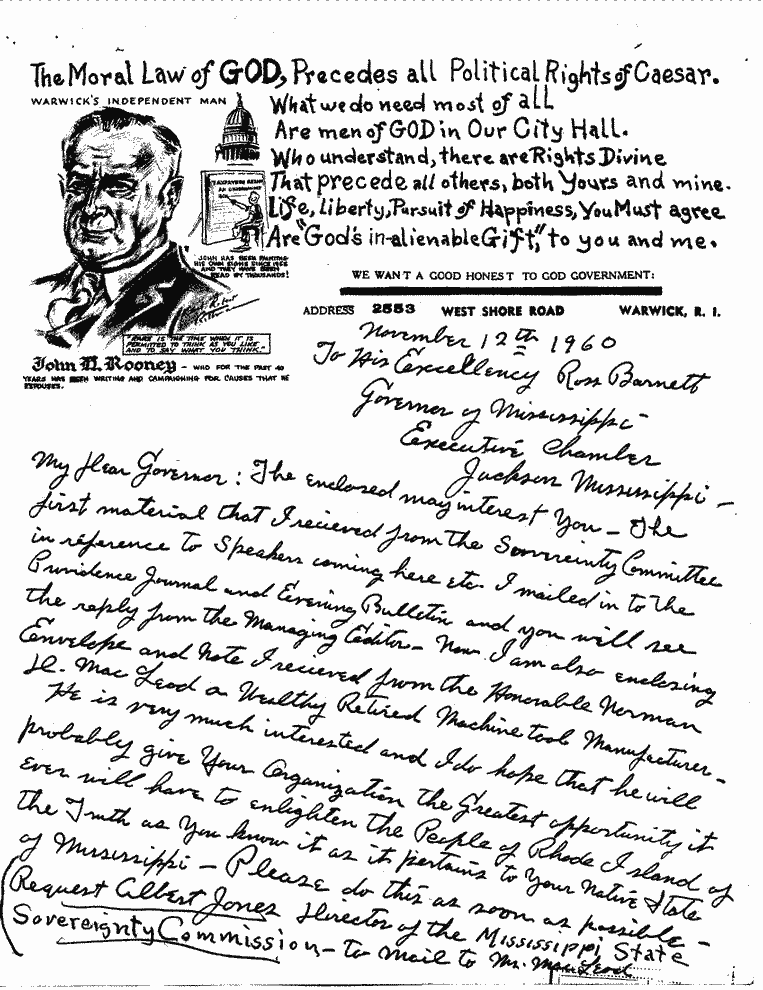 The Moral Law of GOD, Precedes all Political Rights of Caesar.
WARWICK'S INDEPENDENT MAN
What we do need most of all
Are men of GOD in Our City Hall.
Who understand, there are Rights Divine
That precede all others, both Yours and mine.
Life, Liberty, Pursuit of Happiness, You Must agree
Are "God's in-alienable Gift," to you and me.
"JOHN HAS BEEN PAINTING
HIS OWN SIGNS SINCE
AND THEY HAVE BEEN
READ BY THOUSANDS!
WE WANT A GOOD HONEST TO GOD GOVERNMENT:
ADDRESS 2553 WEST SHORE ROAD WARWICK, R. I.
"RARE IS THE TIME WHEN IT IS
PERMITTED TO THINK AS YOU LIKE
AND TO SAY WHAT YOU THINK."
John N. Rooney - WHO FOR THE PAST 40
YEARS HAS BEEN WRITING AND CAMPAIGNING FOR CAUSES THAT HE
ESPOUSES.
November 12th 1960
To His Excellency Ross Barnett
Governor of Mississippi -
Executive Chamber
Jackson Mississippi -
My Dear Governor: The enclosed may interest You - The
first material that I recieved from the Sovereinty Committee
in reference to Speakers coming here etc. I mailed in to the
Providence Journal and Evening Bulletin and you will see
the reply from the Managing Editor - Now I am also enclosing
Envelope and Note I recieved from the Honorable Norman
D. Mac Leod a Wealthy Retired Machine tool Manufacturer -
He is very much interested and I do hope that he will
probably give Your Organization the Greatest opportunity it
ever will have to enlighten the People of Rhode Island of
the Truth as You know it as it pertains to Your Native State
of Mississippi - Please do this as soon as possible -
Request Albert Jones Director of the Mississippi State
Sovereignty Commission - to mail to Mr. Mac Leod